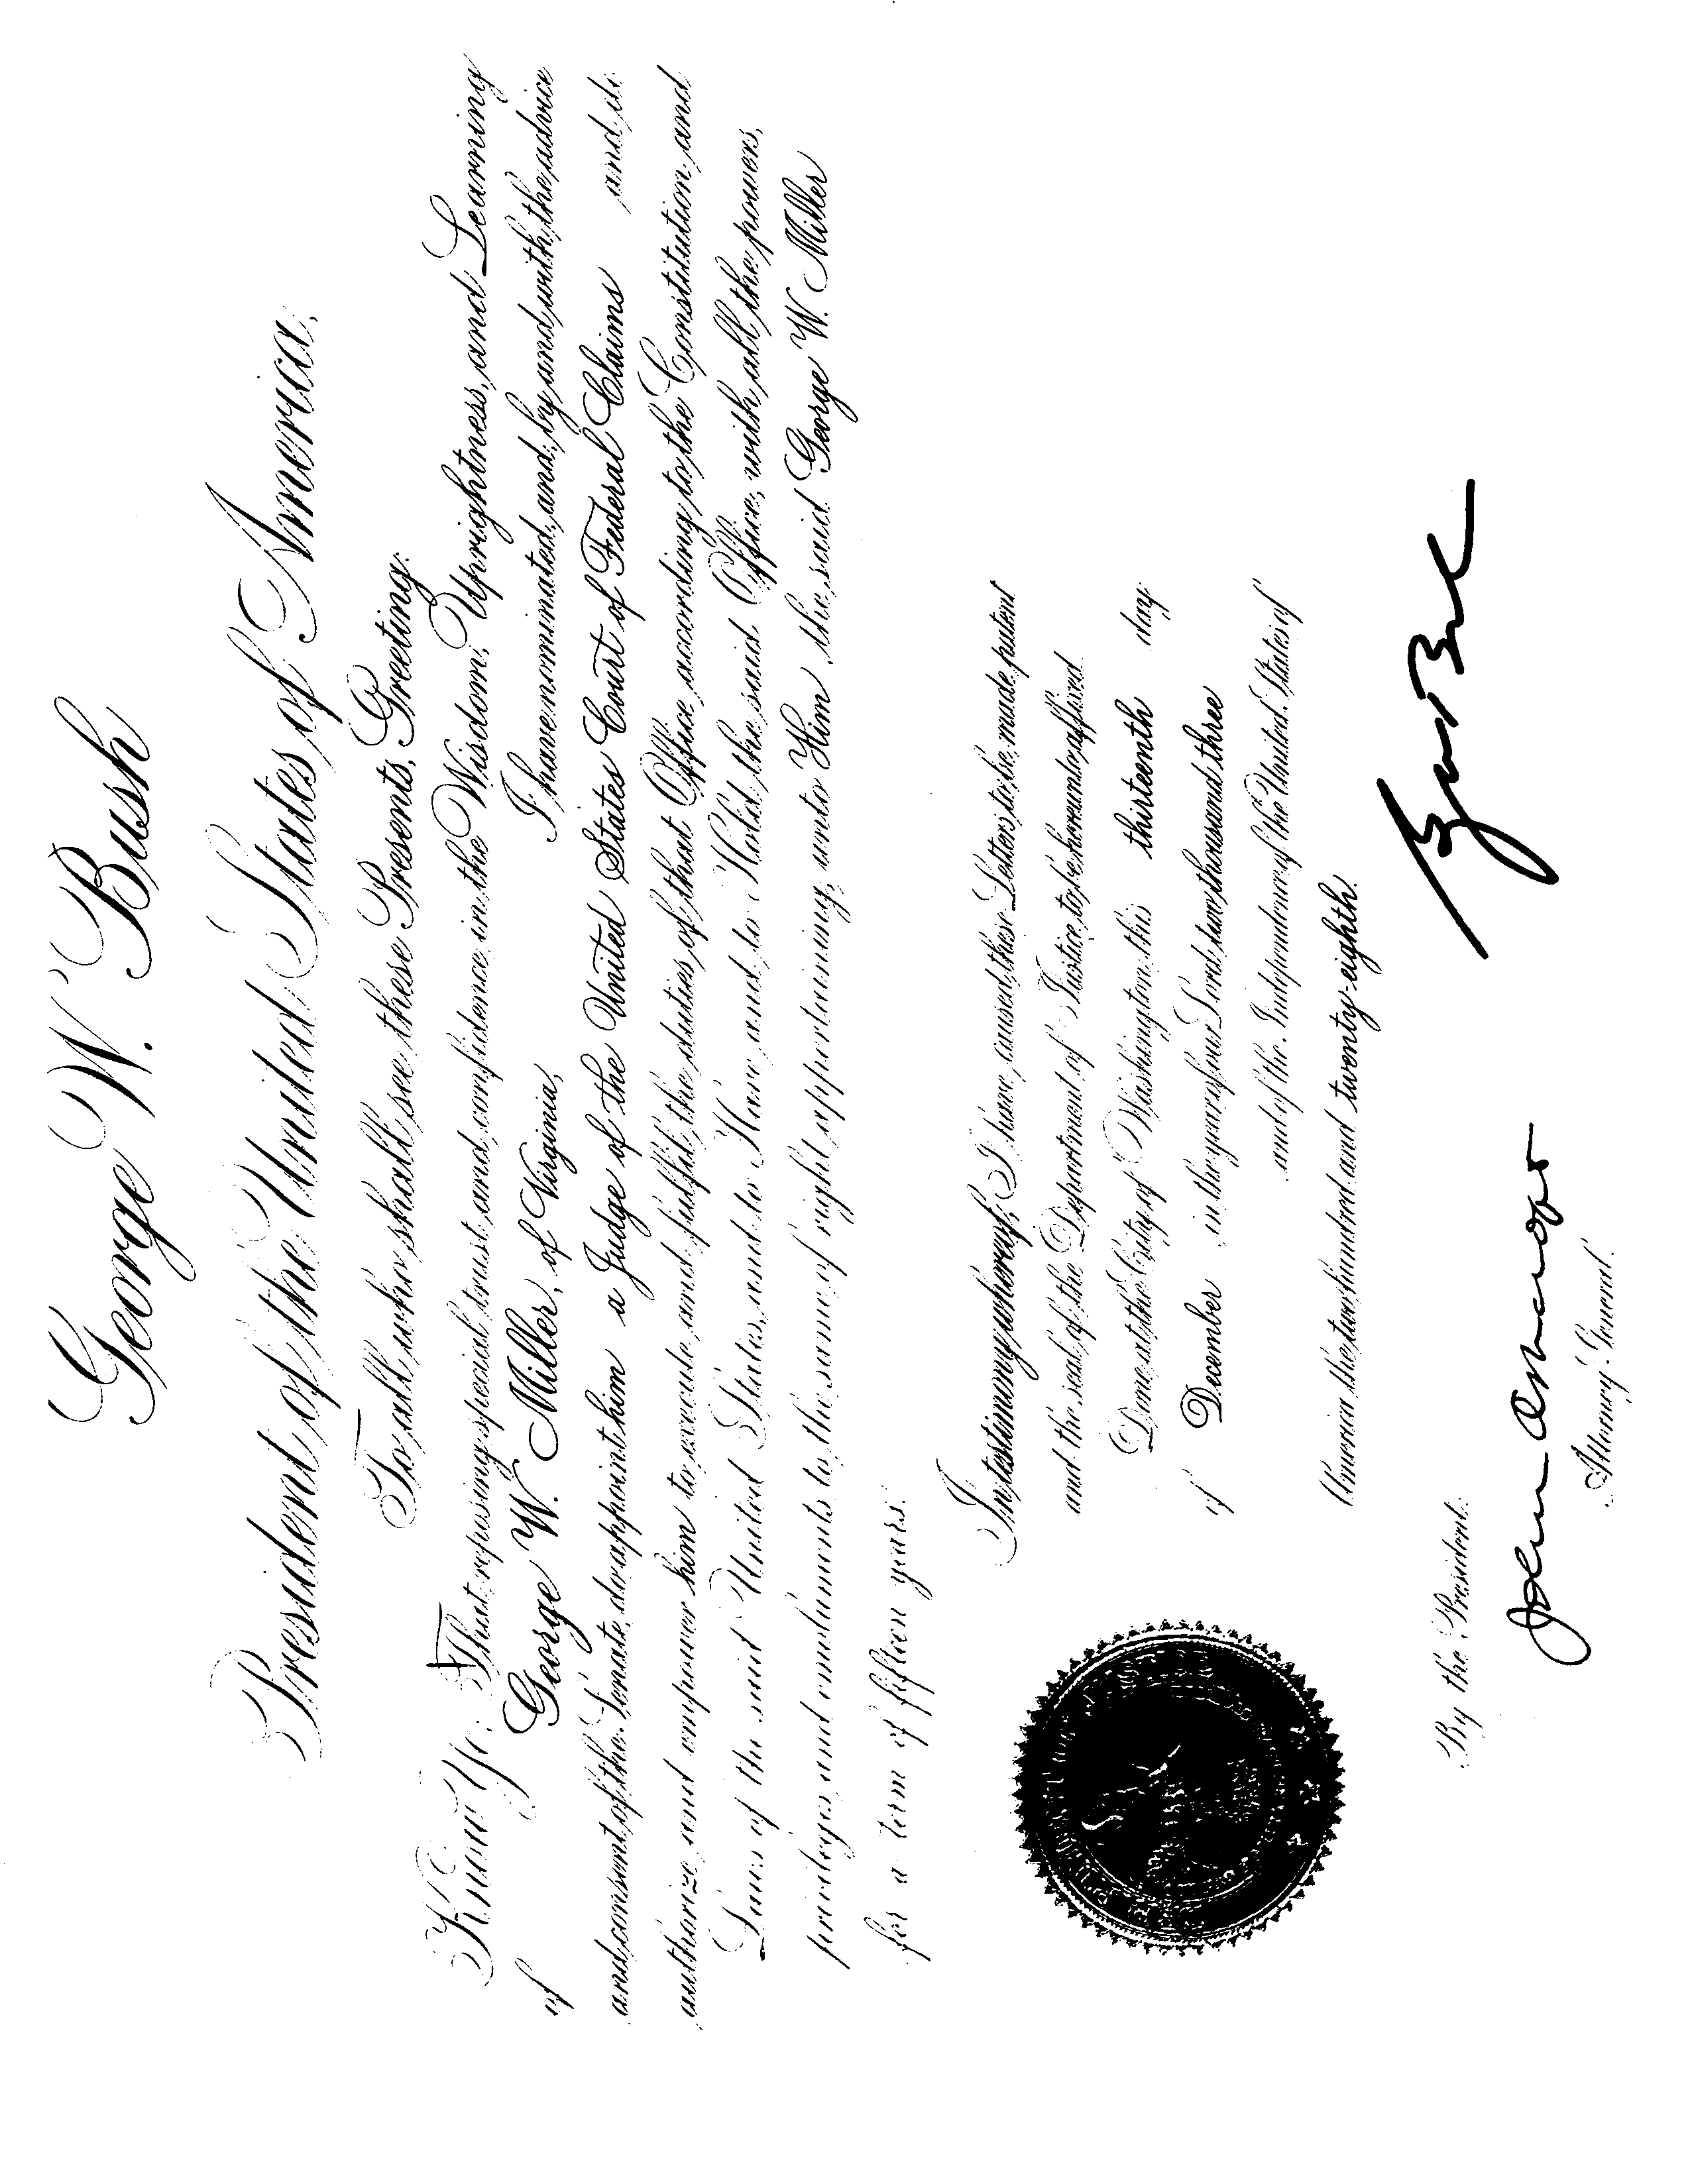 George W. Bush
President of the United States of America,
To all who shall see these Presents, Greeting:
Know Ye: That reposing special trust and confidence in the Wisdom, Uprightness, and Learning
of George W. Miller, of Virginia, I have nominated, and, by and with the advice
and consent of the Senate, do appoint him a Judge of the United States Court of Federal Claims and do
authorize and empower him to execute and fulfil the duties of that Office according to the Constitution and
Laws of the said United States, and to Have and to Hold the said Office, with all the powers,
privileges and emoluments to the same of right appertaining, unto Him the said George W. Miller
for a term of fifteen years.
In testimony whereof, I have caused these Letters to be made patent
and the seal of the Department of Justice to be hereunto affixed.
Done at the City of Washington this thirteenth day
of December in the year of our Lord two thousand three
and of the Independence of the United States of
America the two hundred and twenty-eighth.
By the President:
John Ashcroft
Attorney General.